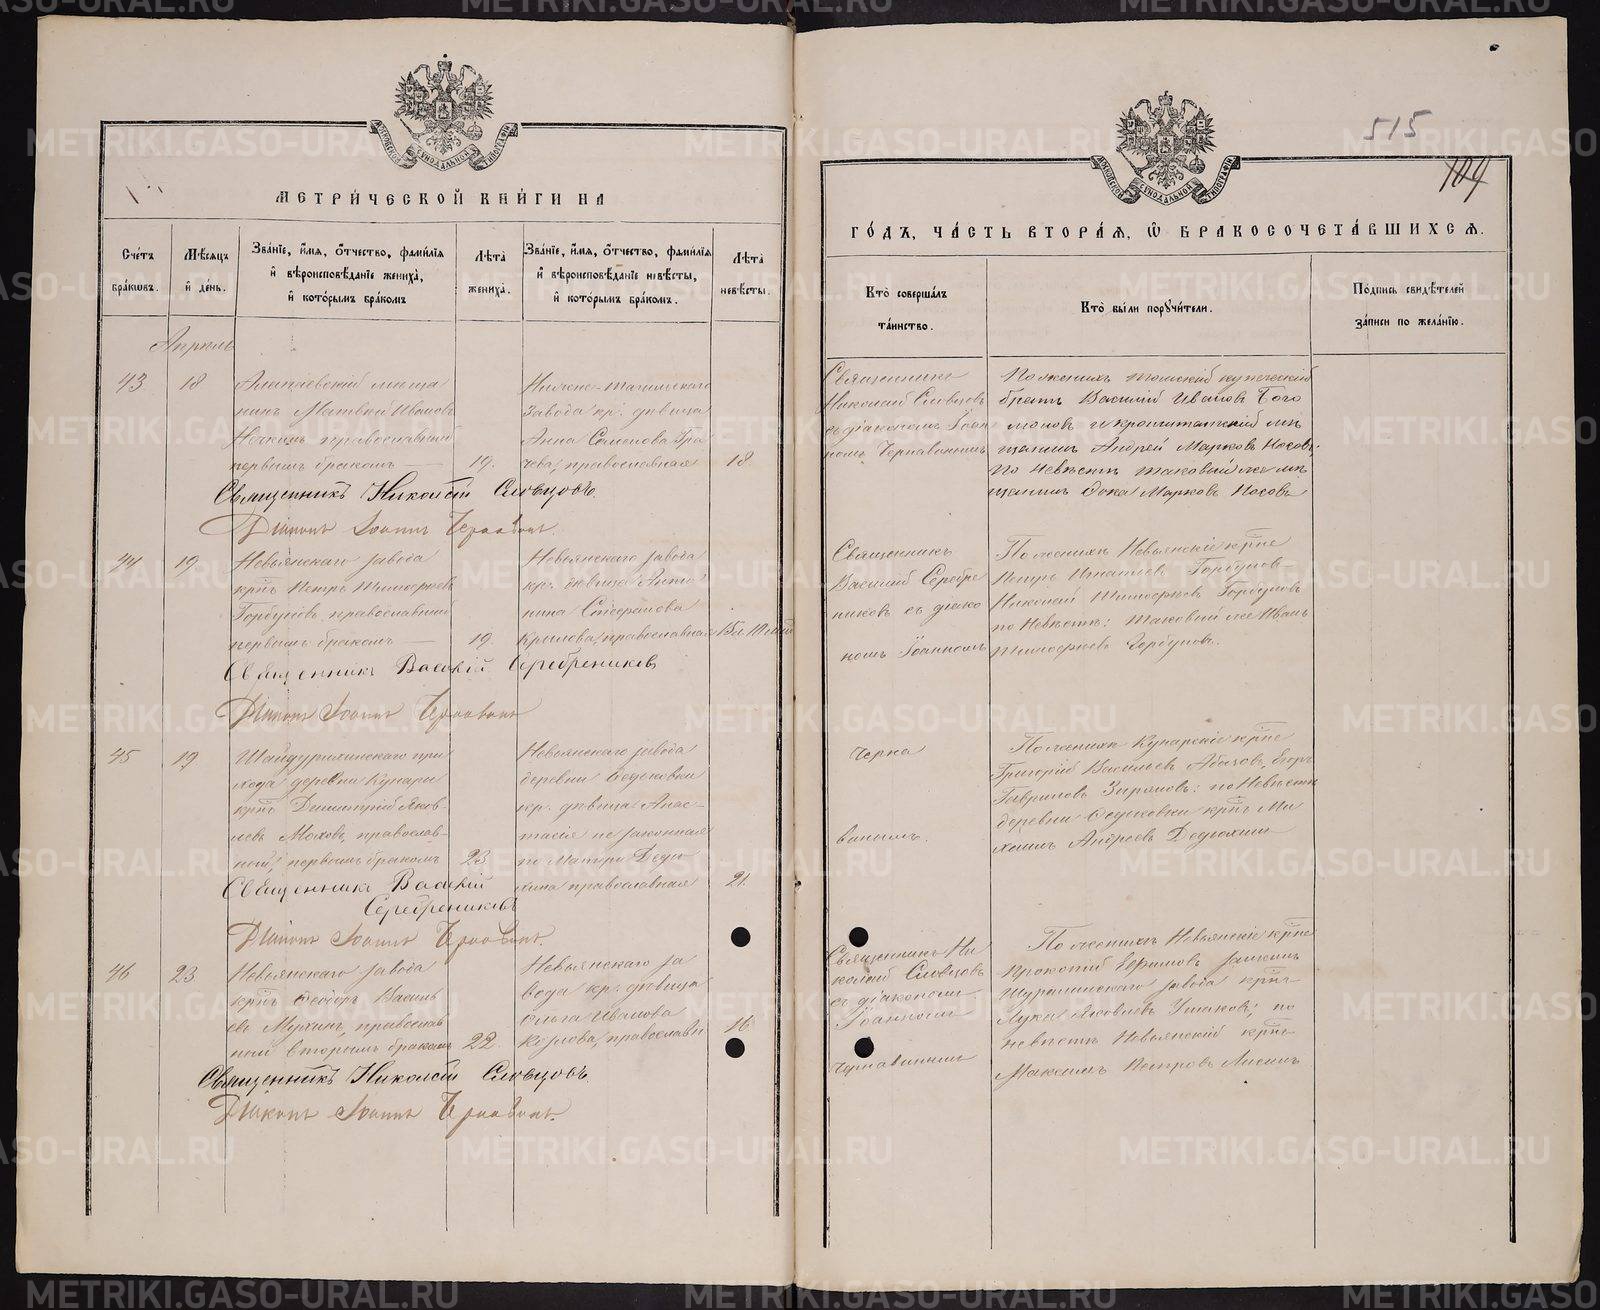 МЕТРИ́ЧЕСКОЙ КНИ́ГИ НА
Сче́тъ бра́кѡвъ.
Мѣ́сяцъ и҆ де́нь.
Зва́нїе, и҆́мѧ, ѻ҆́тчество, фами́лїѧ и҆ вѣроисповѣ́данїе жениха̀, и҆ кото́рымъ бра́комъ
Лѣ́та жениха̀.
Зва́нїе, и҆́мѧ, ѻ҆́тчество, фами́лїѧ и҆ вѣроисповѣ́данїе невѣ́сты, и҆ кото́рымъ бра́комъ.
Лѣ́та невѣ́сты.
Апрѣль
43
18
Алапаевскій мѣща
нинъ Матвѣй Ивановъ
православный
первымъ бракомъ
19.
Нижне-Тагильскаго
завода кр. дѣвица
Анна Семенова Гра
чева, православная
18
Священникъ Николай Словцовъ.
Діаконъ Іоаннъ Чернавинъ.
44
19
Невьянскаго завода
крнъ Петръ Тимофеевъ
Горбуновъ православный
первымъ бракомъ
19.
Невьянскаго завода
кр. дѣвица Анто
нина Стефанова
православная
Священникъ Василій Серебрениковъ
Діаконъ Іоаннъ Чернавинъ
45
19
Шайдурихинскаго при
хода деревни Кунары
крнъ Димитрій Яков
левъ Моховъ, православ-
ный, первымъ бракомъ
23.
Невьянскаго завода
деревни Федьковки
кр. дѣвица Анас-
тасія не законная
по матери Дедю
хина православная
21.
Священникъ Василій
Серебрениковъ
Діаконъ Іоаннъ Чернавинъ.
46
23
Невьянскаго завода
крнъ Феодоръ Василь
евъ Мухинъ, православ
ный вторымъ бракомъ
22.
Невьянскаго за
вода кр. дѣвица
Ольга Иванова
Козлова, православн
16
Священникъ Николай Словцовъ
Діаконъ Іоаннъ Чернавинъ.
515
109
ГО́ДЪ, ЧА́СТЬ ВТОРА́Ѧ, Ѡ҆ БРАКОСОЧЕТА́ВШИХСѦ.
Кто̀ соверша́лъ та́инство.
Кто̀ бы́ли поручи́тели.
По́дпись свидѣ́телей за́писи по жела́нїю.
Священникъ
Николай Словцовъ
съ діакономъ Іоан
номъ Чернавинымъ
По женихѣ томскій купеческій
братъ Василій Ивановъ Бого
моловъ и кронштатскій мѣ
щанинъ Андрей Марковъ Носовъ.
По невѣстѣ таковый же мѣ
щанинъ Фока Марковъ Носовъ
Священникъ
Василій Серебре
никовъ съ діако
номъ Іоанномъ
По женихѣ Невьянскіе крне
Петръ Игнатьевъ Горбунов-
Николай Тимофеевъ Горбуновъ
по невѣстѣ: таковый же Иванъ
Тимофеевъ Горбуновъ.
Черна
винымъ.
По женихѣ Кунарскіе крне
Григорій Васильевъ Абазовъ, Егоръ
Гавриловъ Зыряновъ: по невѣстѣ
деревни Федьковки крнъ Ми
хаилъ Андреевъ Дедюхинъ
Священникъ Ни
колай Словцовъ
съ діакономъ
Іоанномъ
Чернавинымъ
По женихѣ Невьянскіе крне
Прокопій Ефимовъ
Шуралинскаго завода крнъ
Лука Яковлевъ Ушаковъ; по
невѣстѣ Невьянскій крнъ
Максимъ Петровъ